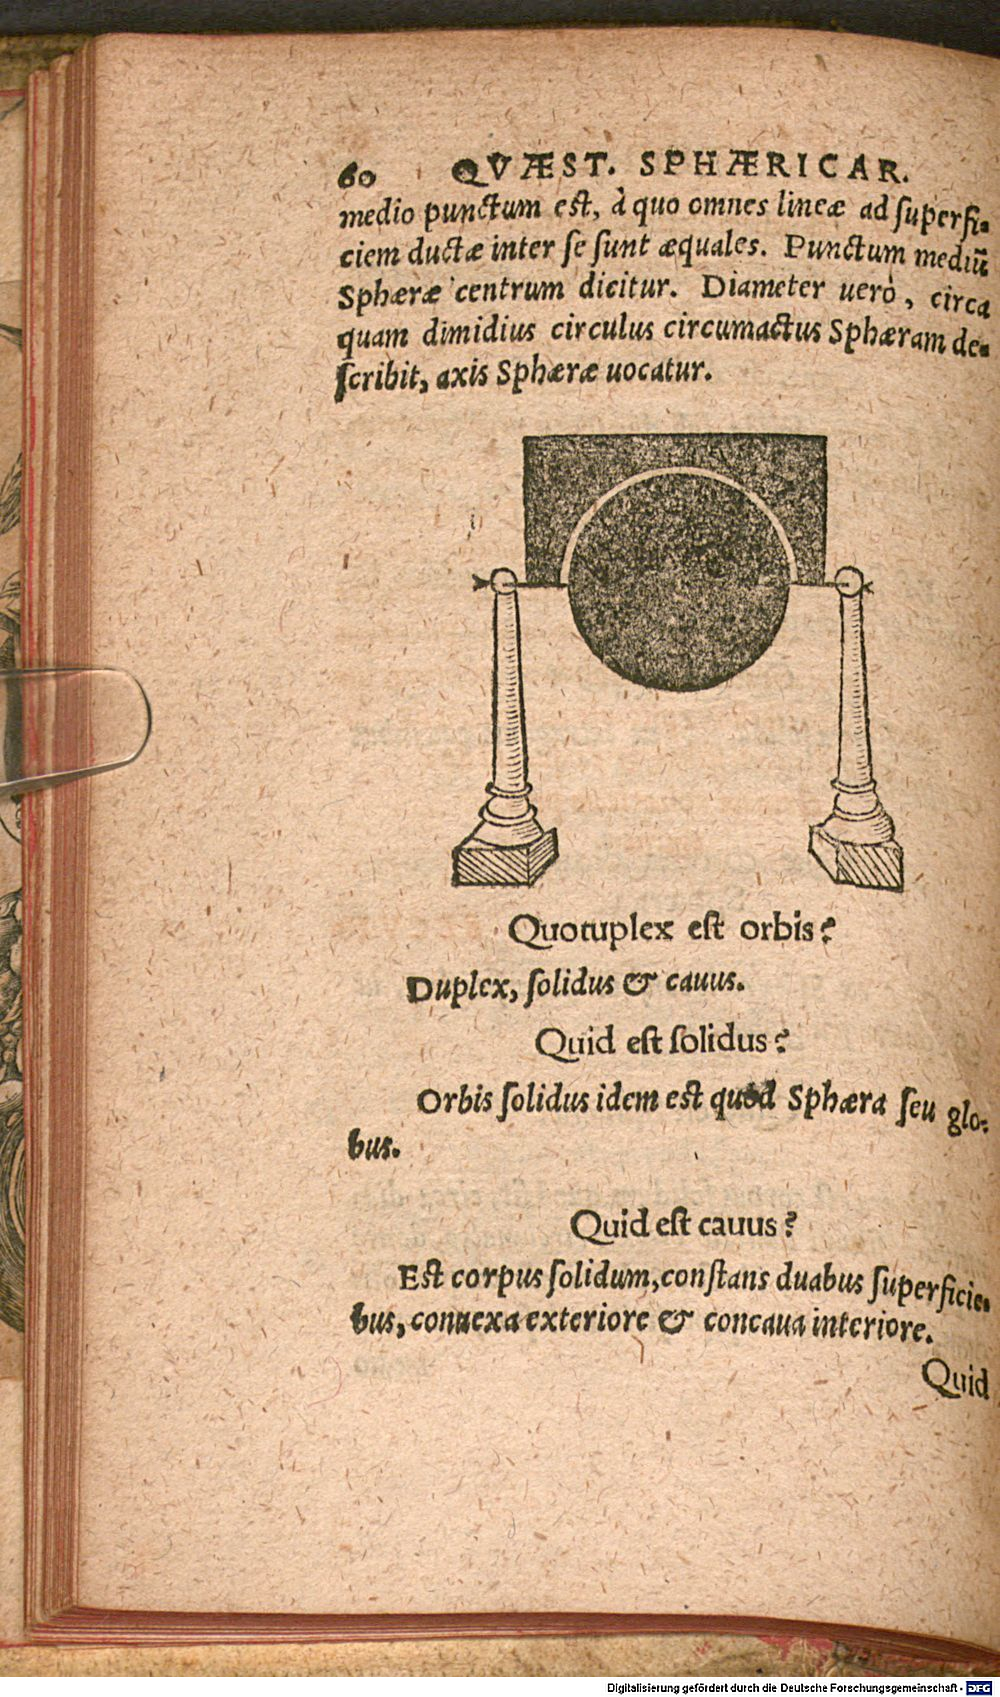 60 QVÆST. SPHÆRICAR.
medio punctum est, à quo omnes lineæ ad superfi-
ciem ductæ inter se sunt æquales. Punctum mediũ
Sphæræ centrum dicitur. Diameter uerò, circa
quam dimidius circulus circumactus Sphæram de-
scribit, axis Sphæræ uocatur.
Quotuplex est orbis?
Duplex, solidus & cauus.
Quid est solidus?
Orbis solidus idem est quod Sphæra seu glo-
bus.
Quid est cauus?
Est corpus solidum, constans duabus superficie-
bus, conuexa exteriore & concaua interiore.
Quid
Digitalisierung gefördert durch die Deutsche Forschungsgemeinschaft - DFG